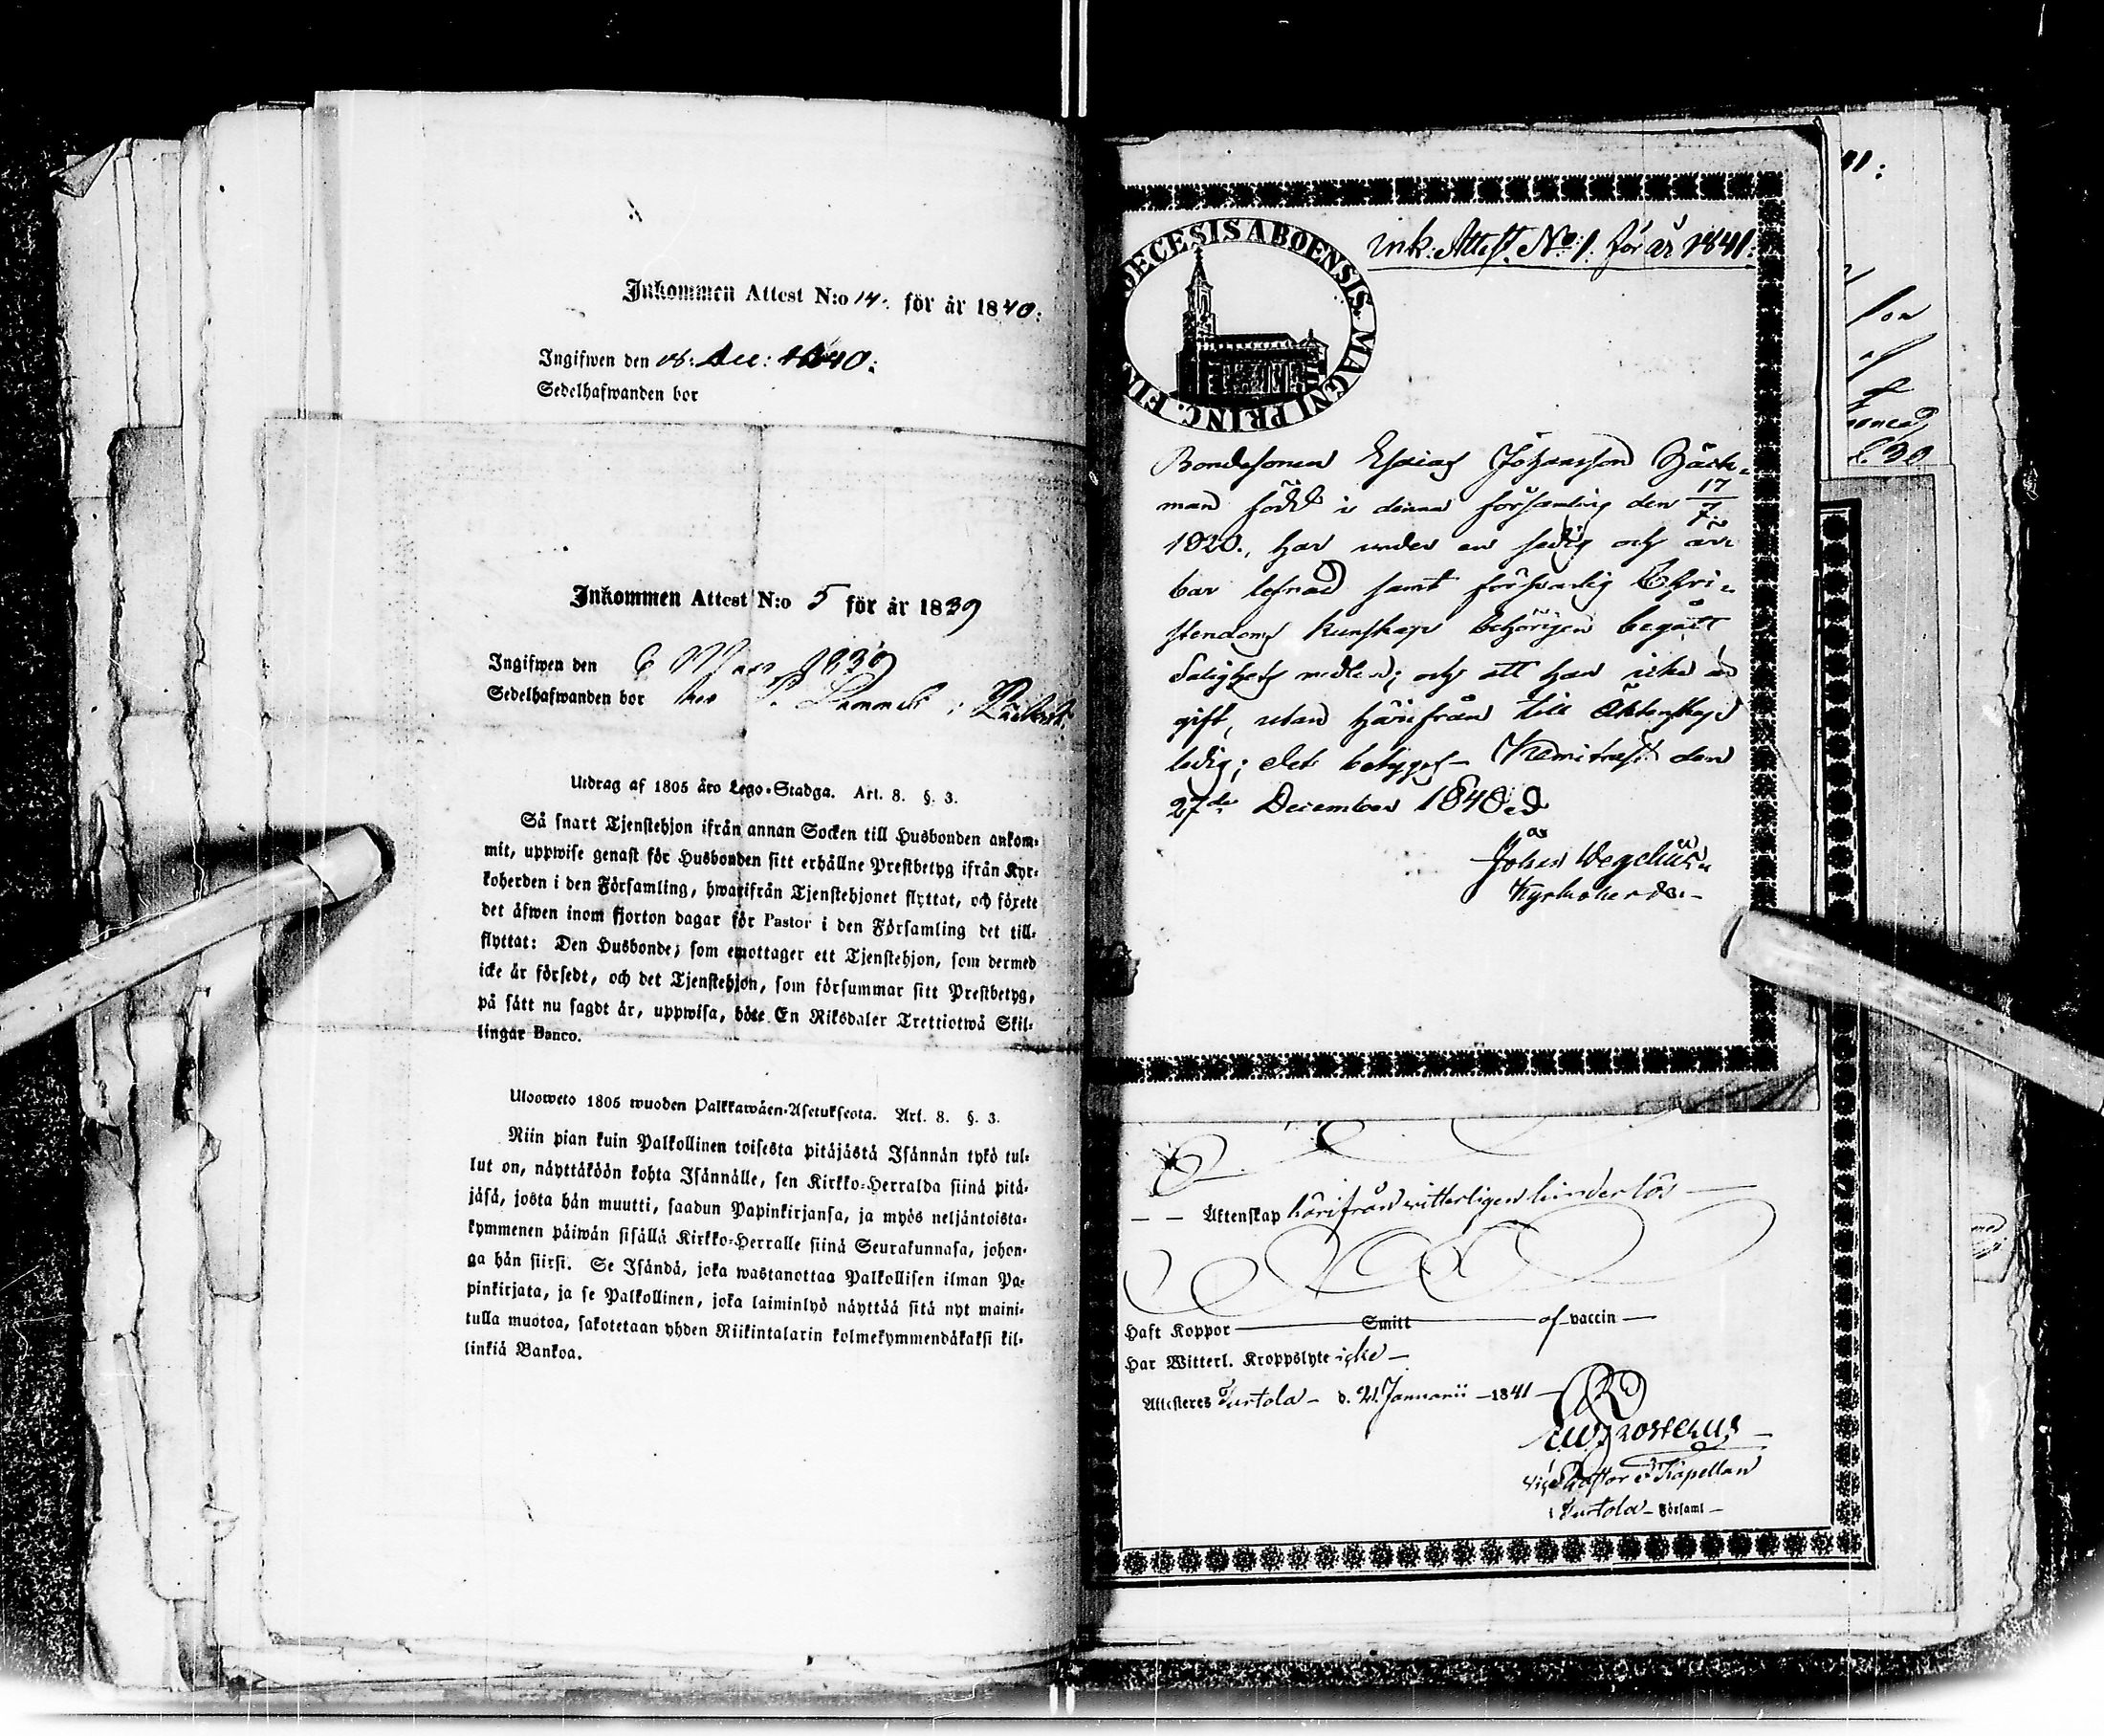 Inkommen Attest N:o 14. för år 1840:
Ingifwen den 18: Dec: 1840:
Sedelhafwanden bor
Inkommen Attest N:o 5 för år 1839
Ingifwen den 6 Mars 1839
Sedelhafwanden bor hos P.
Utdrag af 1805 års Lego-Stadga. Art. 8. §. 3.
Så snart Tjenstehjon ifrån annan Socken till Husbonden ankom-
mit, uppwise genast för Husbonden sitt erhållne Prestbetyg ifrån Kyr-
koherden i den Församling, hwarifrån Tjenstehjonet flyttat, och förete
det äfwen inom fjorton dagar för Pastor i den Församling det till-
flyttat: Den Husbonde, som emottager ett Tjenstehjon, som dermed
icke är försedt, och det Tjenstehjon, som försummar sitt Prestbetyg,
på sätt nu sagdt är, uppwisa, böte En Riksdaler Trettiotwå Skil-
lingar Banco.
Ulosweto 1805 wuoden Palkkawäen-Asetuksesta. Art. 8. §. 3.
Niin pian kuin Palkollinen toisesta pitäjästä Isännän tykö tul-
lut on, näyttäköön kohta Isännälle, sen Kirkko-Herralda siinä pitä-
jäsä, josta hän muutti, saadun Papinkirjansa, ja myös neljäntoista-
kymmenen päiwän sisällä Kirkko-Herralle siinä Seurakunnasa, johon-
ga hän siirsi. Se Isändä, joka wastanottaa Palkollisen ilman Pa-
pinkirjata, ja se Palkollinen, joka laiminlyö näyttää sitä nyt maini-
tulla muotoa, sakotetaan yhden Riikintalarin kolmekymmendäkaksi kil-
linkiä Bankoa.
DECESIS ABOENSIS. MAGNI PRINC. FIN
Ink. Attest. No: 1. för år 1841:
Bondesonen Esaias Johansson Häck-
man född i denna församling den 17/7
1820., har under en sedig och är-
bar lefnad samt försvarlig Chri-
stendoms kunskap behörigen begått
Salighets medlen; och att han icke är
gift, utan härifrån till Äktenskap
ledig; det betygas Kemiträsk den
27de December 1840
Johan Wegelius
Kyrkoherde
Äktenskap härifrån witterligen hinderlös
Haft Koppor Smitt af vaccin
Har Witterl. Kroppslyte icke
Attesteres Turtola d. 21. Januarii 1841
Vice Pastor & Kapellan
i Turtola Församl